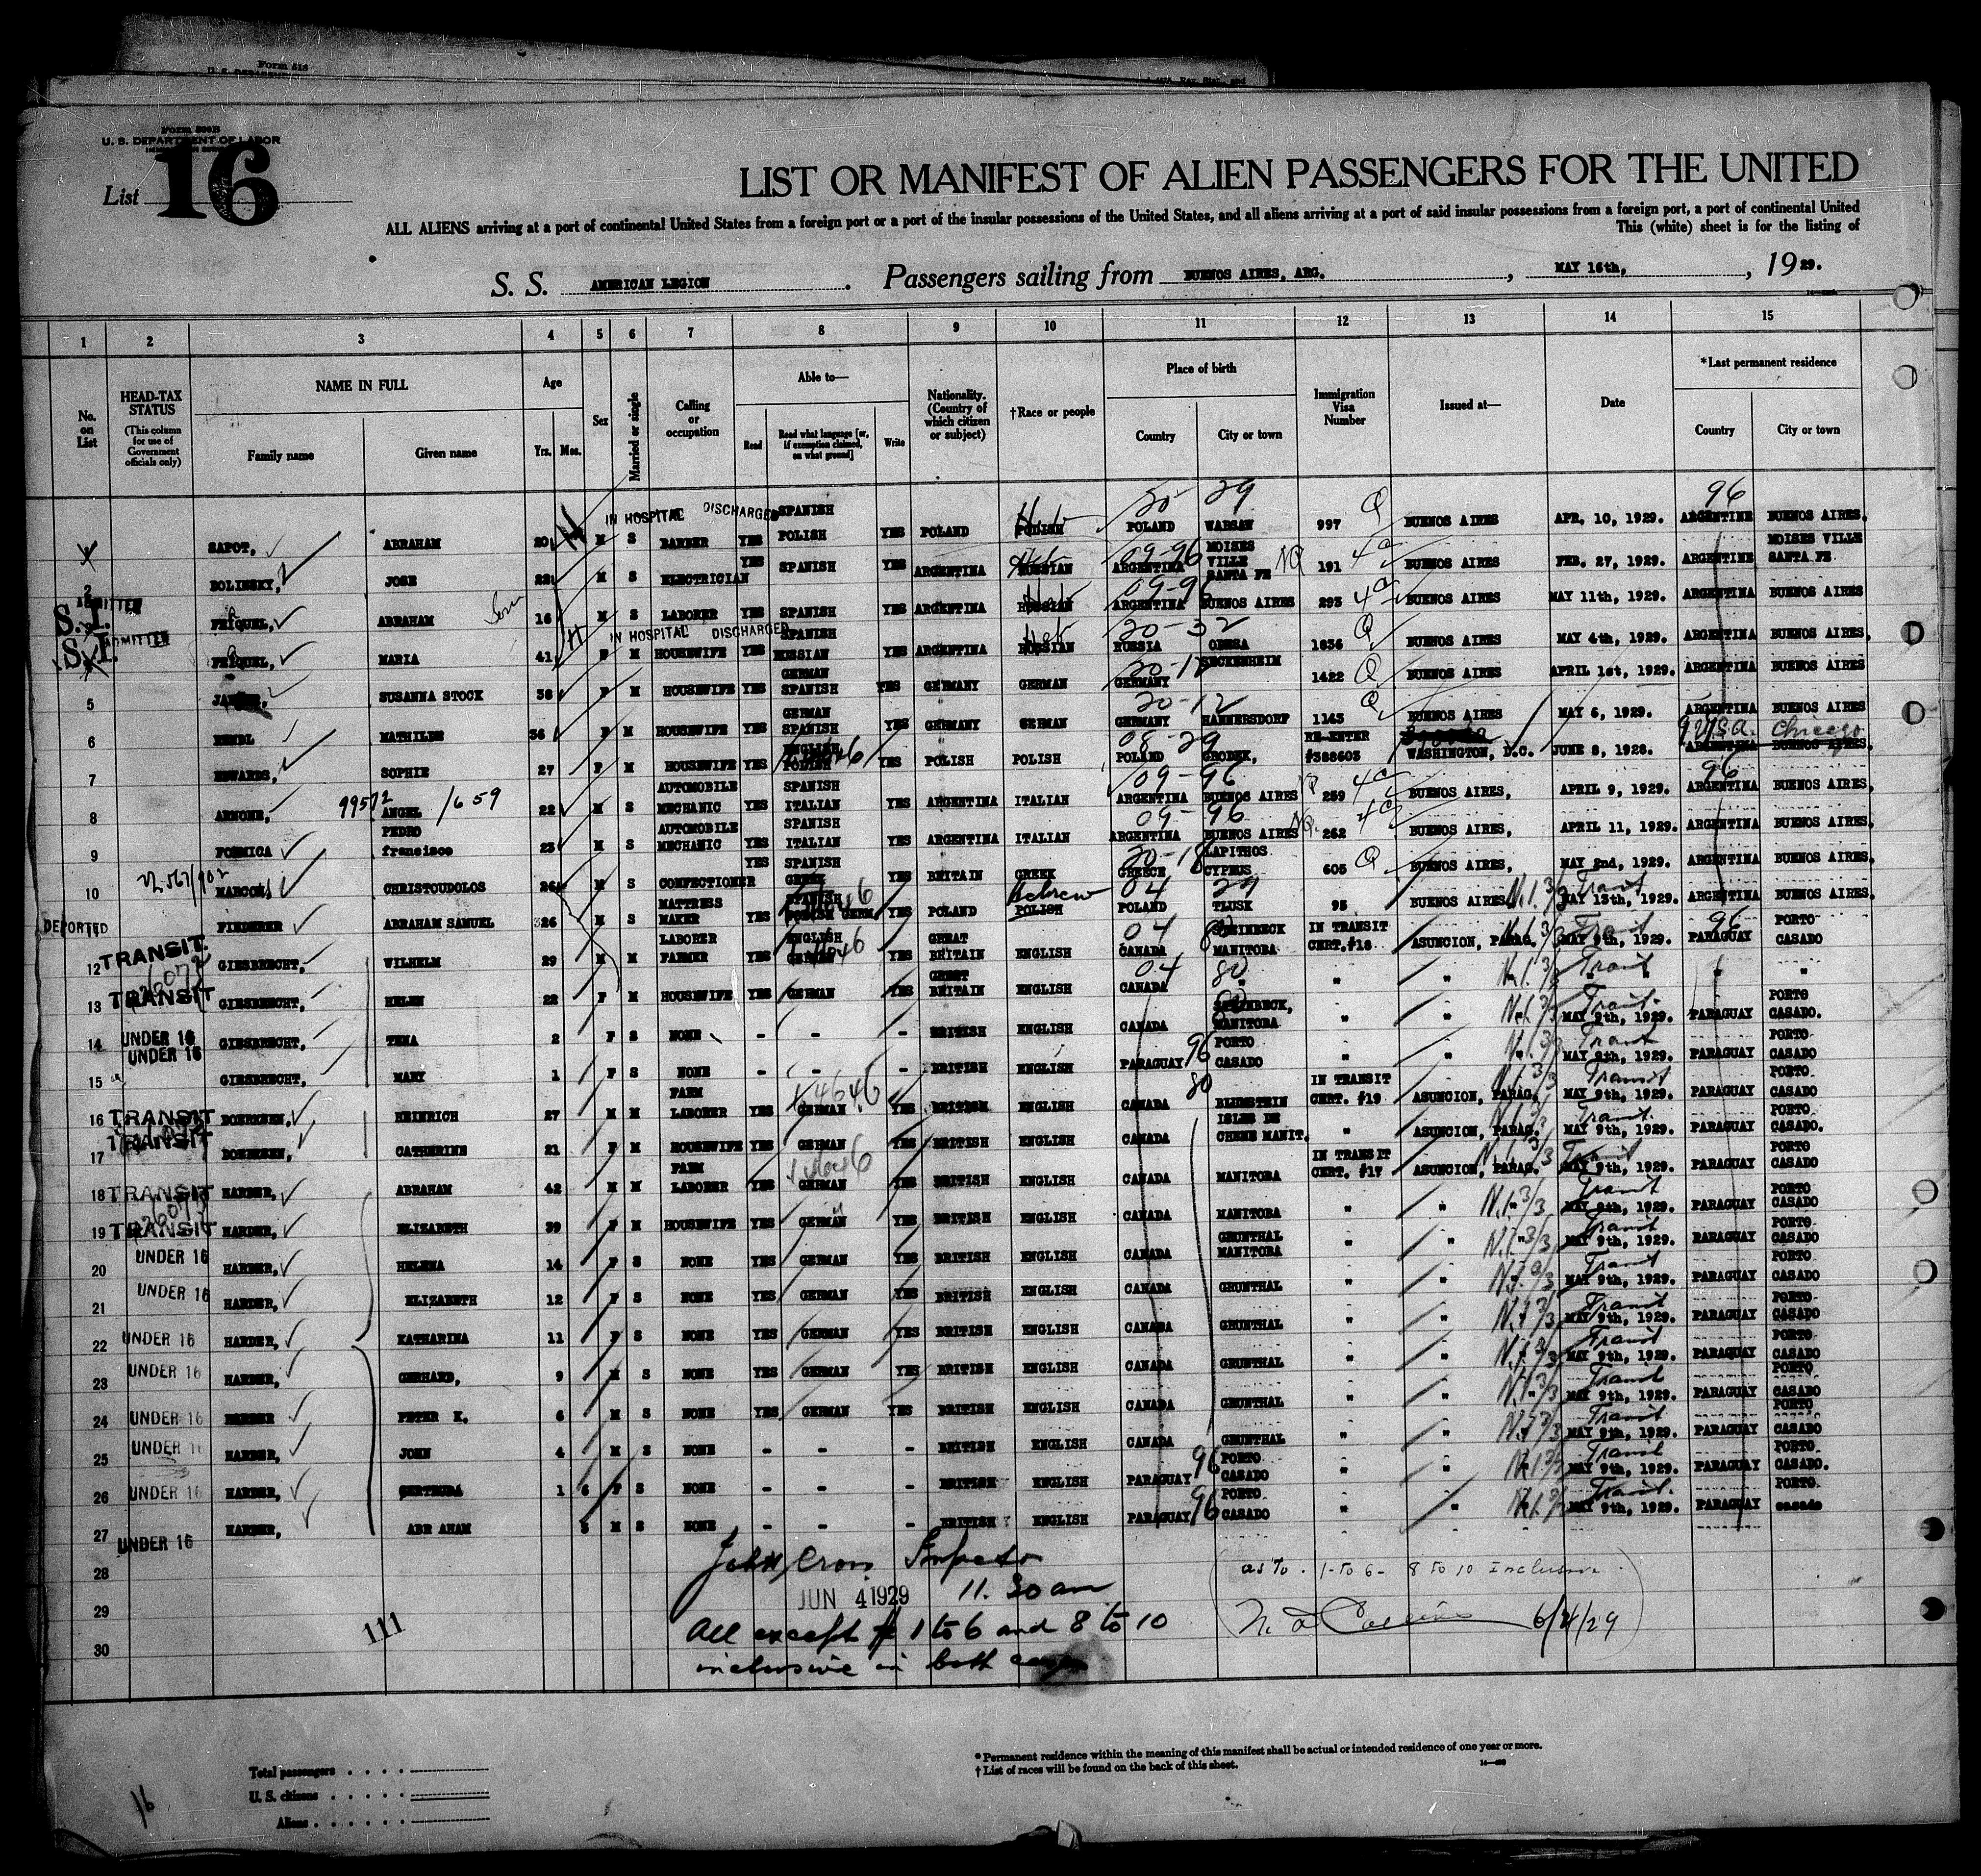 Form 516
Form 500B
U. S. DEPARTMENT OF LABOR
List 16
LIST OR MANIFEST OF ALIEN PASSENGERS FOR THE UNITED
ALL ALIENS arriving at a port of continental United States from a foreign port or a port of the insular possessions of the United States, and all aliens arriving at a port of said insular possessions from a foreign port, a port of continental United
This (white) sheet is for the listing of
S. S. AMERICAN LEGION . Passengers sailing from BUENOS AIRES, ARG. , MAY 16th, , 1929.
1 2 3 4 5 6 7 8 9 10 11 12 13 14 15
No. on List HEAD-TAX STATUS (This column for use of Government officials only) NAME IN FULL Family name Given name Age Yrs. Mos. Sex Married or single Calling or occupation Able to— Read Read what language [or, if exemption claimed, on what ground] Write Nationality. (Country of which citizen or subject) †Race or people Place of birth Country City or town Immigration Visa Number Issued at— Date *Last permanent residence Country City or town
IN HOSPITAL DISCHARGED SPANISH 20 29 Q 96
SAPOT, ABRAHAM 20 M S BARBER YES POLISH YES POLAND POLISH POLAND WARSAW 997 BUENOS AIRES APR. 10, 1929. ARGENTINE BUENOS AIRES,
2 BOLINSKY, JOSE 22 M S ELECTRICIAN YES SPANISH YES ARGENTINA RUSSIAN 09-96 ARGENTINA MOISES VILLE SANTA FE NQ 191 BUENOS AIRES FEB. 27, 1929. ARGENTINE MOISES VILLE SANTA FE
S.I. ADMITTED FEIQUEL, ABRAHAM 16 M S LABORER YES SPANISH YES ARGENTINA RUSSIAN 09-96 ARGENTINA BUENOS AIRES 293 BUENOS AIRES MAY 11th, 1929. ARGENTINA BUENOS AIRES
IN HOSPITAL DISCHARGED
S.I. ADMITTED FEIQUEL, MARIA 41 F M HOUSEWIFE YES SPANISH RUSSIAN YES ARGENTINA RUSSIAN 20-32 RUSSIA ODESA 1836 Q BUENOS AIRES MAY 4th, 1929. ARGENTINA BUENOS AIRES,
5 SUSANNA STOCK 38 F M HOUSEWIFE YES GERMAN SPANISH YES GERMANY GERMAN 20-12 GERMANY SECKENHEIM 1422 Q BUENOS AIRES APRIL 1st, 1929. ARGENTINA BUENOS AIRES
6 MATHILDE 36 F M HOUSEWIFE YES GERMAN SPANISH YES GERMANY GERMAN 20-12 GERMANY HANNERSDORF 1143 Q BUENOS AIRES MAY 6, 1929. ARGENTINA BUENOS AIRES
7 EDWARDS, SOPHIE 27 F M HOUSEWIFE YES ENGLISH POLISH YES POLISH POLISH 08-29 POLAND GRODEK, RE-ENTER #388603 WASHINGTON, D.C. JUNE 8, 1928. U.S.A. Chicago ARGENTINA BUENOS AIRES,
8 ARNONE, 99572 ANGEL 1659 22 M S AUTOMOBILE MECHANIC YES SPANISH ITALIAN YES ARGENTINA ITALIAN 09-96 ARGENTINA BUENOS AIRES 259 BUENOS AIRES, APRIL 9, 1929. 96 ARGENTINA BUENOS AIRES,
9 FORMICA PEDRO francisco 23 M S AUTOMOBILE MECHANIC YES SPANISH ITALIAN YES ARGENTINA ITALIAN 09-96 ARGENTINA BUENOS AIRES 262 BUENOS AIRES, APRIL 11, 1929. ARGENTINA BUENOS AIRES,
10 MARCOU, CHRISTOUDOLOS 26 M S CONFECTIONER YES SPANISH GREEK YES BRITAIN GREEK 20-18 GREECE LAPITHOS CYPRUS 605 Q BUENOS AIRES, MAY 2nd, 1929. ARGENTINA BUENOS AIRES
DEPORTED 11 FIEDERER ABRAHAM SAMUEL 26 M S MATTRESS MAKER YES SPANISH POLISH GERM YES POLAND Hebrew POLISH 04 29 POLAND TLUSK 95 BUENOS AIRES, Transit MAY 13th, 1929. ARGENTINA BUENOS AIRES,
12 TRANSIT. GIESBRECHT, WILHELM 29 M M LABORER FARMER YES ENGLISH GERMAN YES GREAT BRITAIN ENGLISH 04 CANADA STEINBECK MANITOBA IN TRANSIT CERT. #18 ASUNCION, PARAG. Transit MAY 9th, 1929. 96 PARAGUAY PORTO CASADO
13 TRANSIT GIESBRECHT, HELEN 22 F M HOUSEWIFE YES GERMAN YES GREAT BRITAIN ENGLISH 04 80 CANADA " " " Transit " " "
14 UNDER 16 GIESBRECHT, TENA 2 F S NONE - - - BRITISH ENGLISH CANADA STEINBECK, MANITOBA " " Transit MAY 9th, 1929. PARAGUAY PORTO CASADO.
15 UNDER 16 GIESBRECHT, MARY 1 F S NONE - - - BRITISH ENGLISH PARAGUAY 96 PORTO CASADO " " Transit MAY 9th, 1929. PARAGUAY PORTO CASADO
16 TRANSIT HEINRICH 27 M M FARM LABORER YES GERMAN YES BRITISH ENGLISH CANADA 80 IN TRANSIT CERT. #19 ASUNCION, PARAG. Transit MAY 9th, 1929. PARAGUAY PORTO CASADO
17 TRANSIT CATHERINE 21 F M HOUSEWIFE YES GERMAN YES BRITISH ENGLISH CANADA ISLES DE CHENE MANIT. " ASUNCION, PARAG. Transit MAY 9th, 1929. PARAGUAY PORTO CASADO.
18 TRANSIT HARDER, ABRAHAM 42 M M FARM LABORER YES GERMAN YES BRITISH ENGLISH CANADA MANITOBA IN TRANSIT CERT. #17 ASUNCION, PARAG. Transit MAY 9th, 1929. PARAGUAY PORTO CASADO
19 TRANSIT HARDER, ELIZABETH 39 F M HOUSEWIFE YES GERMAN YES BRITISH ENGLISH CANADA MANITOBA " " N.I. 3/3 Transit MAY 9th, 1929. PARAGUAY PORTO CASADO
20 UNDER 16 HARDER, HELENA 14 F S NONE YES GERMAN YES BRITISH ENGLISH CANADA GRUNTHAL MANITOBA " " N.I. 3/3 Transit MAY 9th, 1929. PARAGUAY PORTO CASADO
21 UNDER 16 HARDER, ELIZABETH 12 F S NONE YES GERMAN YES BRITISH ENGLISH CANADA GRUNTHAL " " N.I. 3/3 Transit MAY 9th, 1929. PARAGUAY PORTO CASADO
22 UNDER 16 HARDER, KATHARINA 11 F S NONE YES GERMAN YES BRITISH ENGLISH CANADA GRUNTHAL " " N.I. 3/3 Transit MAY 9th, 1929. PARAGUAY PORTO CASADO
23 UNDER 16 HARDER, GERHARD, 9 M S NONE YES GERMAN YES BRITISH ENGLISH CANADA GRUNTHAL " " N.I. 3/3 Transit MAY 9th, 1929. PARAGUAY PORTO CASADO
24 UNDER 16 HARDER PETER K. 6 M S NONE YES GERMAN YES BRITISH ENGLISH CANADA GRUNTHAL " " N.I. 3/3 Transit MAY 9th, 1929. PARAGUAY PORTO CASADO
25 UNDER 16 HARDER, JOHN 4 M S NONE - - - BRITISH ENGLISH CANADA GRUNTHAL " " N.I. 3/3 Transit MAY 9th, 1929. PARAGUAY PORTO CASADO
26 UNDER 16 HARDER, GERTRUDA 1 6 F S NONE - - - BRITISH ENGLISH PARAGUAY 96 PORTO CASADO " " Transit MAY 9th, 1929. PARAGUAY PORTO CASADO.
27 UNDER 16 HARDER, ABRAHAM 3 M S NONE - - - BRITISH ENGLISH PARAGUAY 96 PORTO CASADO " " Transit MAY 9th, 1929. PARAGUAY PORTO casado
28 Cross Inspector as to 1-to 6- 8 to 10 Inclusive
29 JUN 4 1929 11.30 am
111 6/4/29
30 All except # 1 to 6 and 8 to 10
inclusive in both
Total passengers . . . .
U. S. citizens . . . . .
Aliens . . . . . .
16
* Permanent residence within the meaning of this manifest shall be actual or intended residence of one year or more.
† List of races will be found on the back of this sheet.